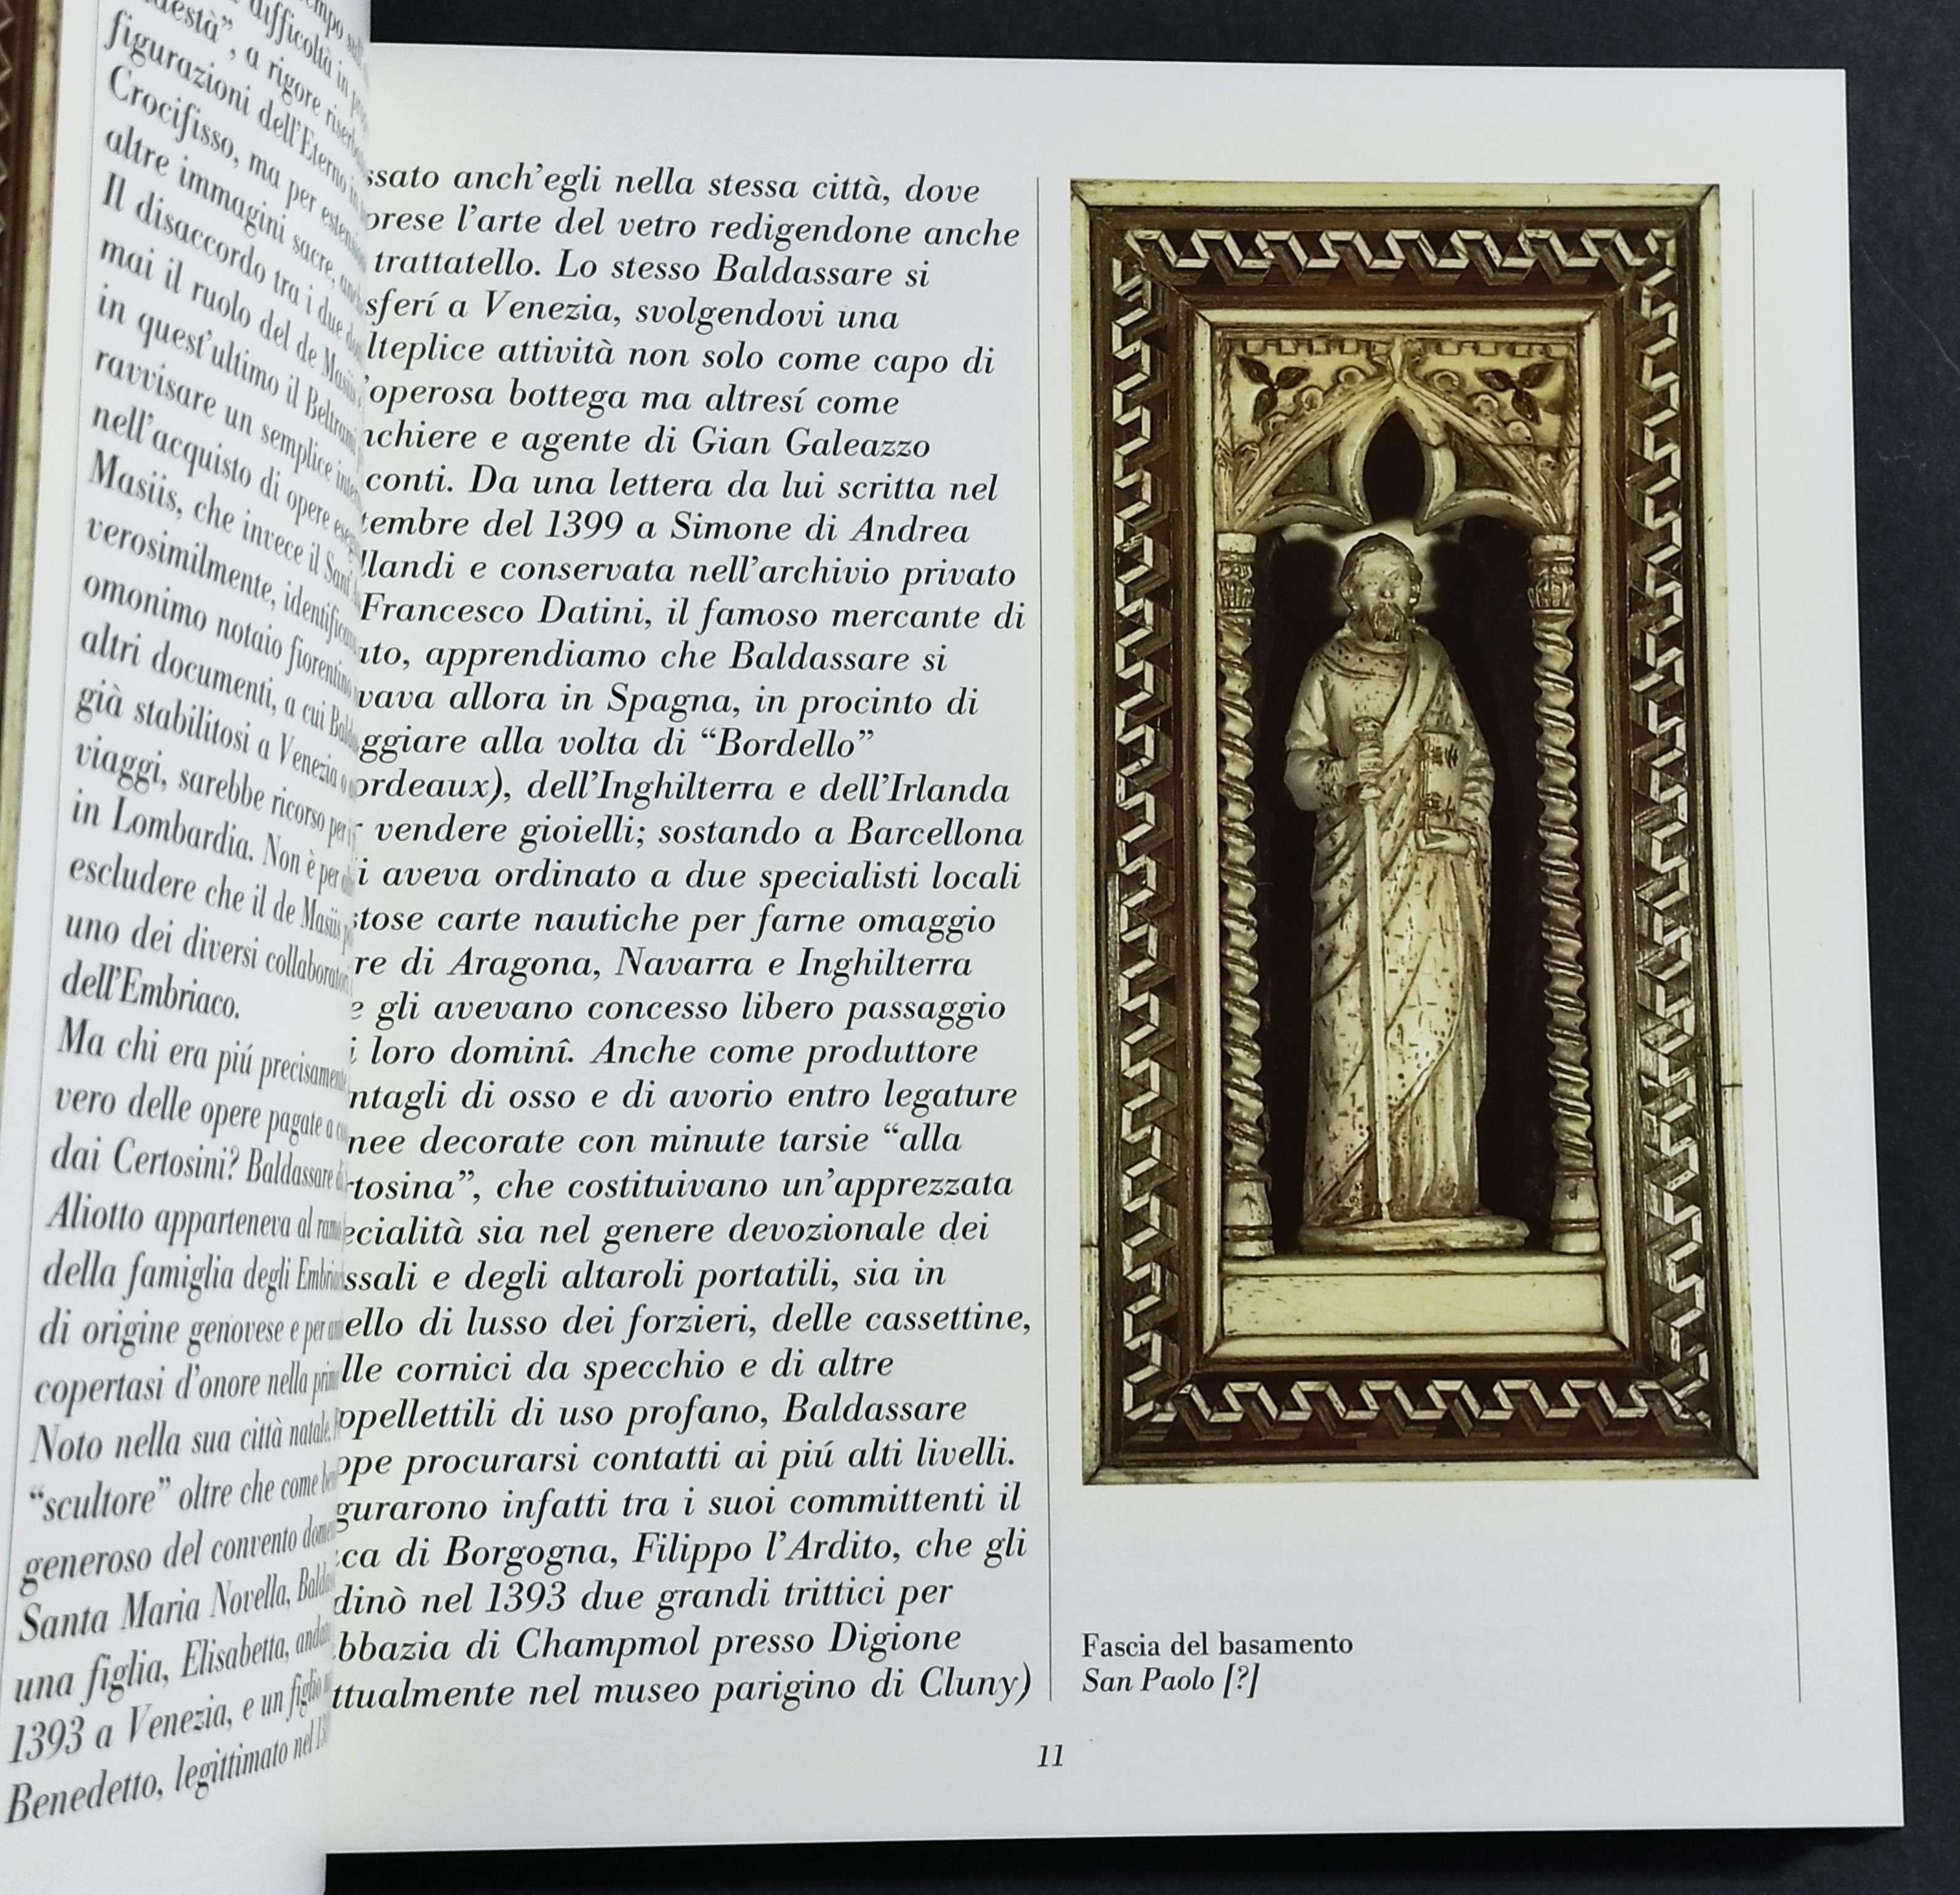 difficoltà in
a rigore
figurazioni dell'Eterno in
Crocifisso, ma per
altre immagini sacre,
Il disaccordo tra i due
mai il ruolo del de Masiis
in quest'ultimo il Beltrami
ravvisare un semplice
nell'acquisto di opere
Masiis, che invece il
verosimilmente,
omonimo notaio fiorentino
altri documenti, a cui
già stabilitosi a Venezia o
viaggi, sarebbe ricorso per
in Lombardia. Non è per
escludere che il de Masiis
uno dei diversi
dell'Embriaco.
Ma chi era piú precisamente
vero delle opere pagate a
dai Certosini? Baldassare
Aliotto apparteneva al
della famiglia degli
di origine genovese e per
copertasi d'onore nella
Noto nella sua città natale,
“scultore” oltre che come
generoso del convento
Santa Maria Novella,
una figlia, Elisabetta,
1393 a Venezia, e un figlio
Benedetto, legittimato nel
anch'egli nella stessa città, dove
l'arte del vetro redigendone anche
trattatello. Lo stesso Baldassare si
a Venezia, svolgendovi una
attività non solo come capo di
operosa bottega ma altresí come
e agente di Gian Galeazzo
conti. Da una lettera da lui scritta nel
tembre del 1399 a Simone di Andrea
llandi e conservata nell'archivio privato
Francesco Datini, il famoso mercante di
apprendiamo che Baldassare si
vava allora in Spagna, in procinto di
ggiare alla volta di “Bordello”
ordeaux), dell'Inghilterra e dell'Irlanda
vendere gioielli; sostando a Barcellona
i aveva ordinato a due specialisti locali
stose carte nautiche per farne omaggio
re di Aragona, Navarra e Inghilterra
e gli avevano concesso libero passaggio
i loro dominî. Anche come produttore
ntagli di osso e di avorio entro legature
nee decorate con minute tarsie “alla
rtosina”, che costituivano un'apprezzata
ecialità sia nel genere devozionale dei
ssali e degli altaroli portatili, sia in
ello di lusso dei forzieri, delle cassettine,
lle cornici da specchio e di altre
ppellettili di uso profano, Baldassare
ppe procurarsi contatti ai piú alti livelli.
gurarono infatti tra i suoi committenti il
ca di Borgogna, Filippo l'Ardito, che gli
dinò nel 1393 due grandi trittici per
bbazia di Champmol presso Digione
ttualmente nel museo parigino di Cluny)
Fascia del basamento
San Paolo [?]
11